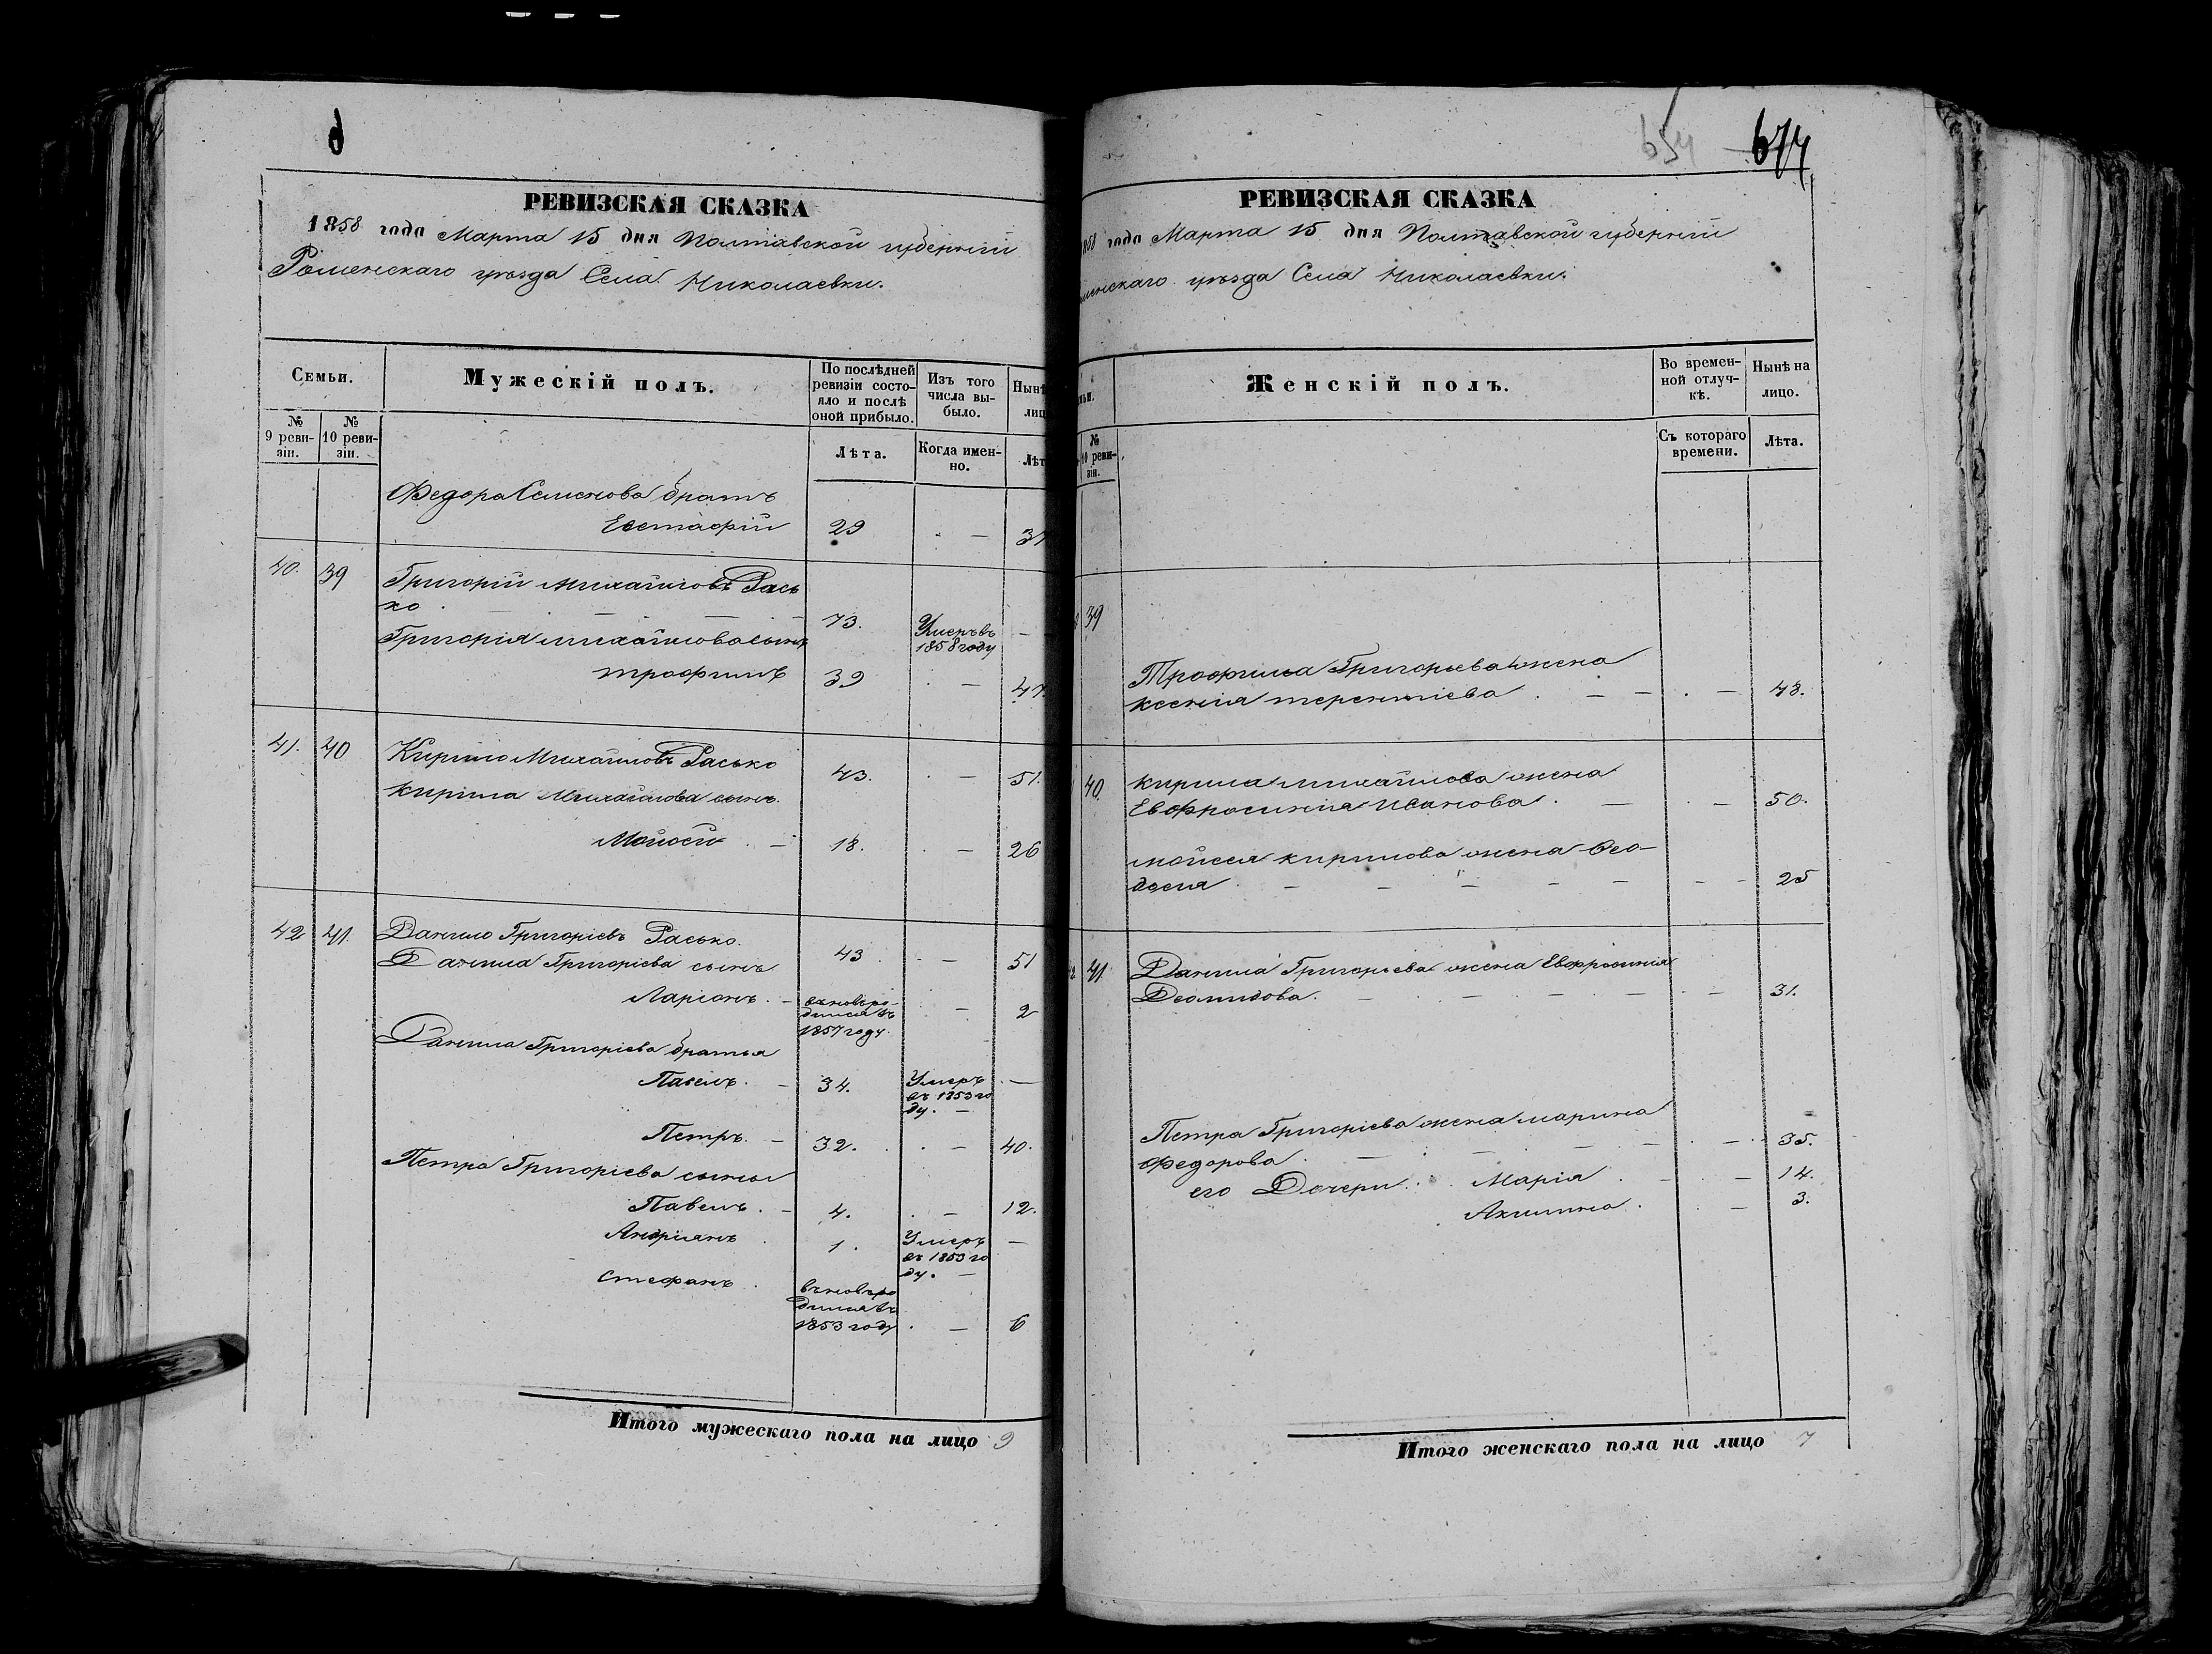 РЕВИЗСКАЯ СКАЗКА
1858 года Марта 15 дня Полтавской губерніи
Роменскаго уѣзда Села Николаевки.
Семьи.
Мужескій полъ.
По послѣдней ревизіи состояло и послѣ оной прибыло.
Изъ того числа выбыло.
Нынѣ
лиц
№ 9 ревизіи.
№ 10 ревизіи.
Лѣта.
Когда именно.
Лѣт
Федора Семенова братъ
Евстафій 29 - 37
40. 39 Григорій Михайловъ Рась
ко 73. Умеръ въ 1858 году -
Григорія Михайлова сынъ
Трофимъ 39 - 47
41. 40 Кирило Михайловъ Расько 43. - 51.
Кирила Михайлова сынъ
Мойсей - 18. - 26
42 41. Данило Григоріевъ Расько. 43 - 51
Данила Григоріева сынъ
Ларіонъ. - вновь родился въ 1857 году. - 2
Данила Григоріева братья
Павелъ. - 34. Умеръ въ 1853 году. -
Петръ. - 32. - 40.
Петра Григоріева сыны
Павелъ. - 4. - 12.
Андріянъ 1. Умеръ въ 1853 году. -
Стефанъ вновь родился въ 1853 году - 6
Итого мужескаго пола на лицо 9
654 674
РЕВИЗСКАЯ СКАЗКА
1858 года Марта 15 дня Полтавской губерніи
менскаго уѣзда Села Николаевки.
ьи.
Женскій полъ.
Во временной отлучкѣ.
Нынѣ на лицо.
№ 10 ревизіи.
Съ котораго времени.
Лѣта.
39
Трофима Григорьева жена
Ксенія Терентіева - - 48.
40. Кирила Михайлова жена
Евфросинія Иванова - - 50.
Мойсея Кирилова жена Ѳео-
досія - - - 25
41. Данила Григорьева жена Евфросинія
Деомидова. - - - 31.
Петра Григоріева жена Марина
Федорова - - - 35.
его Дочери: Марія - 14.
Акилина - 3.
Итого женскаго пола на лицо 7